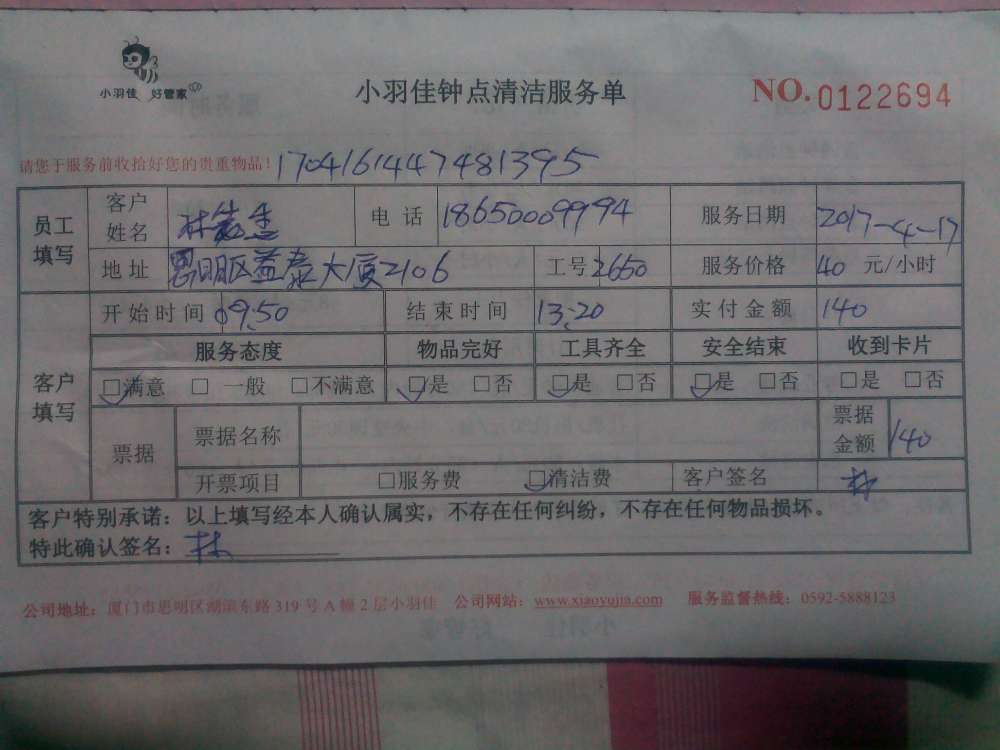 小羽佳 好管家
小羽佳钟点清洁服务单
NO.0122694
请您于服务前收拾好您的贵重物品！17041614474481395
员工填写 客户姓名 林 电话 18650009994 服务日期 2017-4-17
地址 思明区益泰大厦2106 工号 2650 服务价格 40 元/小时
客户填写 开始时间 09:50 结束时间 13:20 实付金额 140
服务态度 物品完好 工具齐全 安全结束 收到卡片
☑满意 □ 一般 □不满意 ☑是 □否 ☑是 □否 ☑是 □否 □是 □否
票据 票据名称 票据金额 140
开票项目 □服务费 ☑清洁费 客户签名 林
客户特别承诺：以上填写经本人确认属实，不存在任何纠纷，不存在任何物品损坏。
特此确认签名：林
公司地址：厦门市思明区湖滨东路 319 号 A 幢 2 层小羽佳 公司网站：www.xiaoyujia.com 服务监督热线：0592-5888123